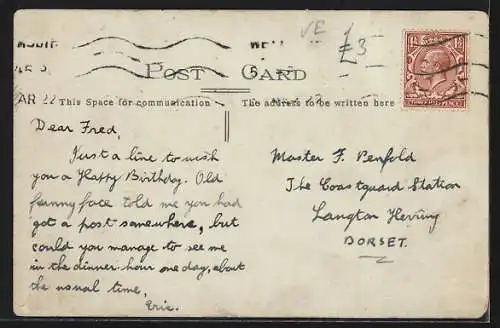 VE £3
POST CARD
AR 22
This Space for communication
The address to be written here
Dear Fred,
Just a line to wish
you a Happy Birthday. Old
funny face told me you had
got a post somewhere, but
could you manage to see me
in the dinner hour one day, about
the usual time,
Eric.
Master F. Penfold
The Coastguard Station
Langton Herring
DORSET.